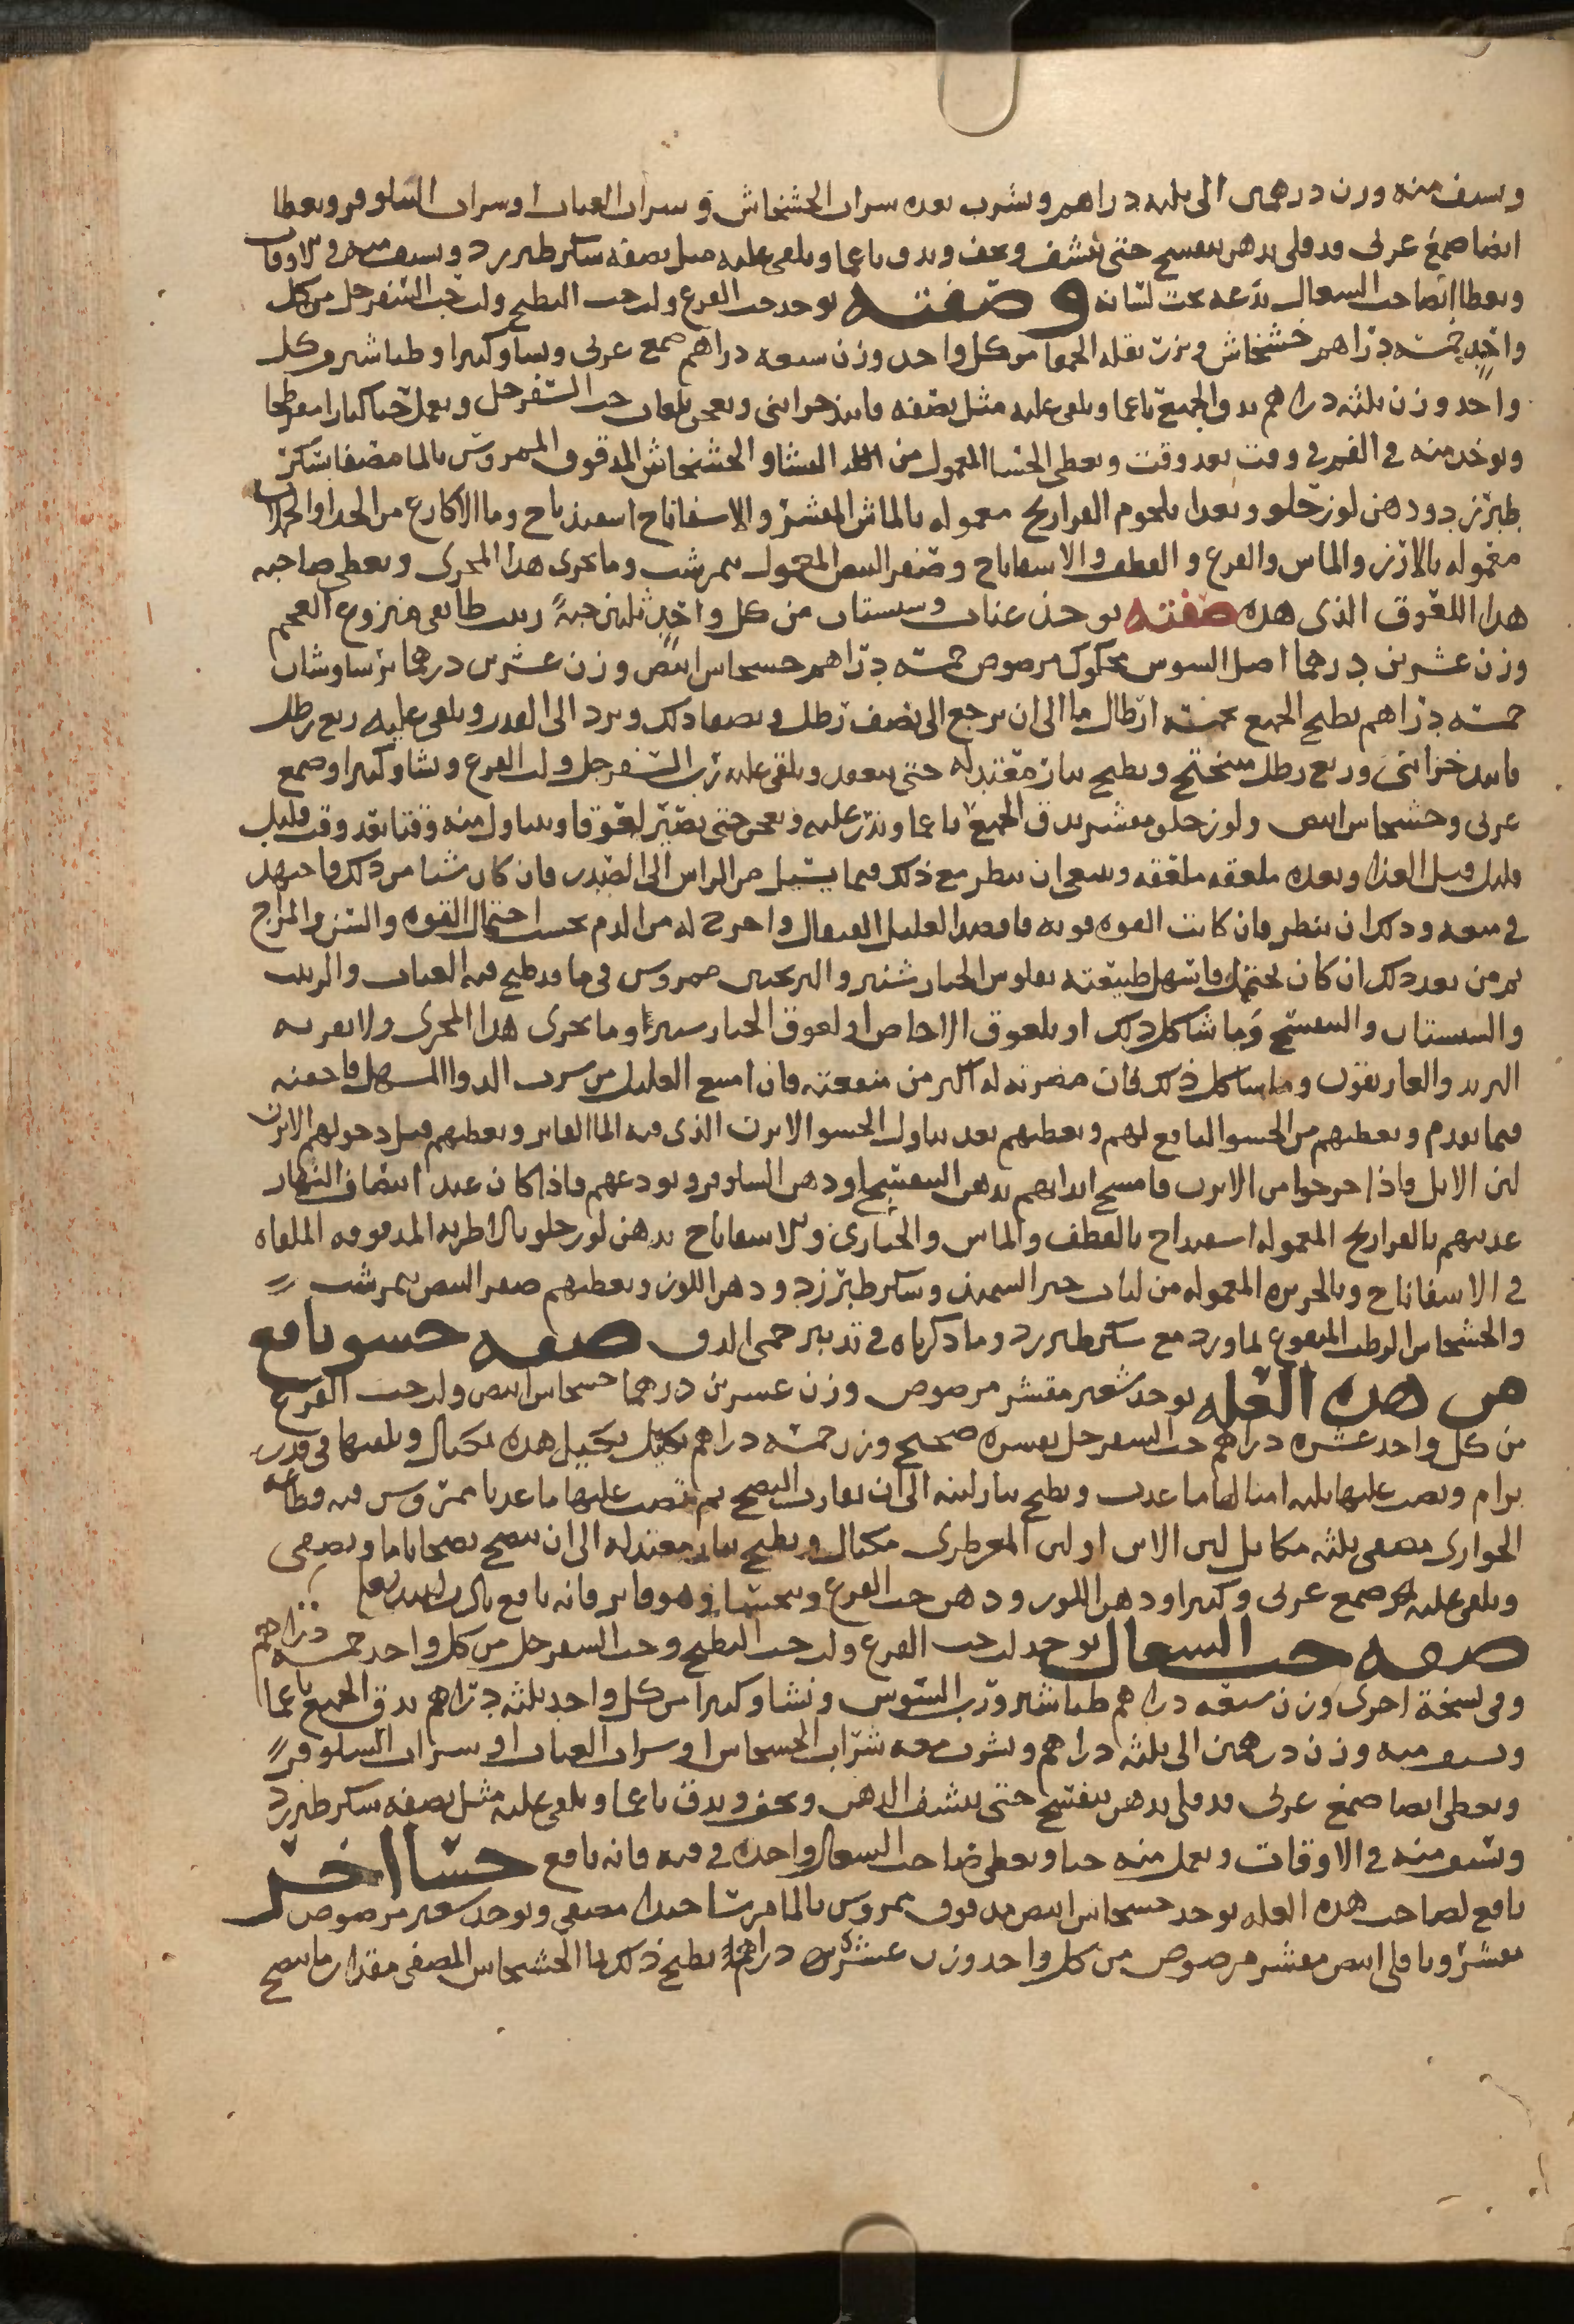 ويسف منه وزن درهمين الى ثلثه دراهم ويشرب بعده شراب الخشخاش او شراب العناب او شراب النيلوفر ويعطا
ايضا صمغ عربى قد قلى بدهن بنفسج حتى نشف ويجف ويدق ناعما ويلقى عليه مثل نصفه سكر طبرزد ويسف منه فى الاوقات
ويعطا ايضا حب السعال يدعه تحت لسانه وصفته يوخذ حب القرع ولب حب البطيخ ولب حب السفرجل من كل
واحد خمسه دراهم خشخاش وبزر بقله الحمقا من كل واحد وزن سبعه دراهم صمغ عربى ونشا وكثيرا وطباشير من كل
واحد وزن ثلثه دراهم يدق الجميع ناعما ويلقى عليه مثل نصفه فانيذ خزاينى ويعجن بلعاب حب السفرجل ويعمل حبا كبارا مفرطحا
ويوخذ منه فى الفم فى وقت بعد وقت ويعطى الحسا المعمول من النشا والخشخاش المدقوق الممروس بالما مصفا بسكر
طبرزد ودهن لوز حلو ويغدا بلحوم الفراريج معموله بالماش المقشر والاسفاناخ اسفيذباج وما الاكارع من الجدا والحملان
معموله بالارز والماش والقرع والقطف والاسفاناخ وصفر البيض المعمول نمرشت وما يجرى هذا المجرى ويعطى صاحبه
هذا اللعوق الذى هذه صفته يوخذ عناب وسبستان من كل واحد ثلثين حبة زبيب طايفى منزوع العجم
وزن عشرين درهما اصل السوس محكوك مرضوض خمسه دراهم خشخاش ابيض وزن عشرين درهما برساوشان
خمسه دراهم يطبخ الجميع بخمسة ارطال ما الى ان يرجع الى نصف رطل ويصفا ذلك ويرد الى القدر ويلقى عليه ربع رطل
فانيد خزاينى وربع رطل ميبختج ويطبخ بنار معتدله حتى ينعقد ويلقى عليه رب السفرجل ولب القرع ونشا وكثيرا وصمغ
عربى وخشخاش ابيض ولوز حلو مقشر يدق الجميع ناعما ويذر عليه ويعجن حتى يصير لعوقا ويتناول منه وقتا بعد وقت قليل
قليل قبل الغذا وبعده ملعقه ملعقه وينبغى ان ينظر مع ذلك فيما يسيل من الراس الى الصدر فان كان شيا من ذلك فاجتهد
فى منعه وذلك ان ينظر فان كانت القوه قويه فافصد العليل القيفال واخرج له من الدم بحسب احتمال القوه والسن والمزاج
ثم من بعد ذلك ان كان يحتمل فاسهل طبيعته بفلوس الخيار شنبر والترنجبين ممروس فى ما قد طبخ فيه العناب والزبيب
والسبستان والبنفسج وما شاكل ذلك او بلعوق الاجاص او لعوق الخيار شنبر او ما يجرى هذا المجرى ولا تقربه
التربد والغاريقون وما شاكل ذلك فان مضرته له اكثر من منفعته فان امتنع العليل من شرب الدوا المسهل فاحقنه
فيما تقدم ويعطيهم من الحسو النافع لهم ويعطيهم بعد تناول الحسو الابزن الذى فيه الما الفاتر ويعطيهم قبل دخولهم الابزن
لبن الابل فاذا خرجوا من الابزن فامسح ابدانهم بدهن البنفسج او دهن النيلوفر وتودعهم فاذا كان عند انتصاف النهار
غديتهم بالفراريج المعموله اسفيداج بالقطف والماش والخبازى والاسفاناخ بدهن لوز حلو بالاطريه المدقوقه الملقاه
فى الاسفاناخ وبالحريره المعموله من لباب خبز السميذ وسكر طبرزد ودهن اللوز ويعطيهم صفر البيض نمرشت
والخشخاش الرطب المنقوع بماورد مع سكر طبرزد وما ذكرناه فى تدبير حمى الدق صفه حسو نافع
من هذه العله يوخذ شعير مقشر مرضوض وزن عشرين درهما خشخاش ابيض ولب حب القرع
من كل واحد عشره دراهم حب السفرجل بقشره صحيح وزن خمسه دراهم تكيل هذه بمكيال ويلقيها فى قدر
برام ويصب عليها ثلثه امثالها ما عذب ويطبخ بنار لينه الى ان يقارب النضج ثم تصب عليها ما عذبا ممروس فيه قطاعه
الحوارى مصفى ثلثه مكاييل لبن الاتن او لبن المعز طرى مكيال ويطبخ بنار معتدله الى ان ينضج نضجا تاما ويصفى
ويلقى عليه صمغ عربى وكثيرا ودهن اللوز ودهن حب القرع ويتحسا وهو فاتر فانه نافع
صفه حب السعال يوخذ لب حب القرع ولب حب البطيخ وحب السفرجل من كل واحد خمسه دراهم
وفى نسخة اخرى وزن سبعه دراهم طباشير ورب السوس ونشا وكثيرا من كل واحد ثلثه دراهم يدق الجميع ناعما
ويسف منه وزن درهمين الى ثلثه دراهم ويشرب معه شراب الخشخاش او شراب العناب او شراب النيلوفر
ويعطى ايضا صمغ عربى قد قلى بدهن بنفسج حتى ينشف الدهن ويجف ويدق ناعما ويلقى عليه مثل نصفه سكر طبرزد
ويسف منه فى الاوقات ويعمل منه حبا ويعطى صاحب السعال واحده فى فيه فانه نافع حسا اخر
نافع لصاحب هذه العله يوخذ خشخاش ابيض مدقوق ممروس بالما مرسا جيدا مصفى ويوخذ شعير مرضوض
مقشر وباقلى ابيض مقشر مرضوض من كل واحد وزن عشره دراهم يطبخ ذلك بما الخشخاش المصفى مقدار ما ينضج